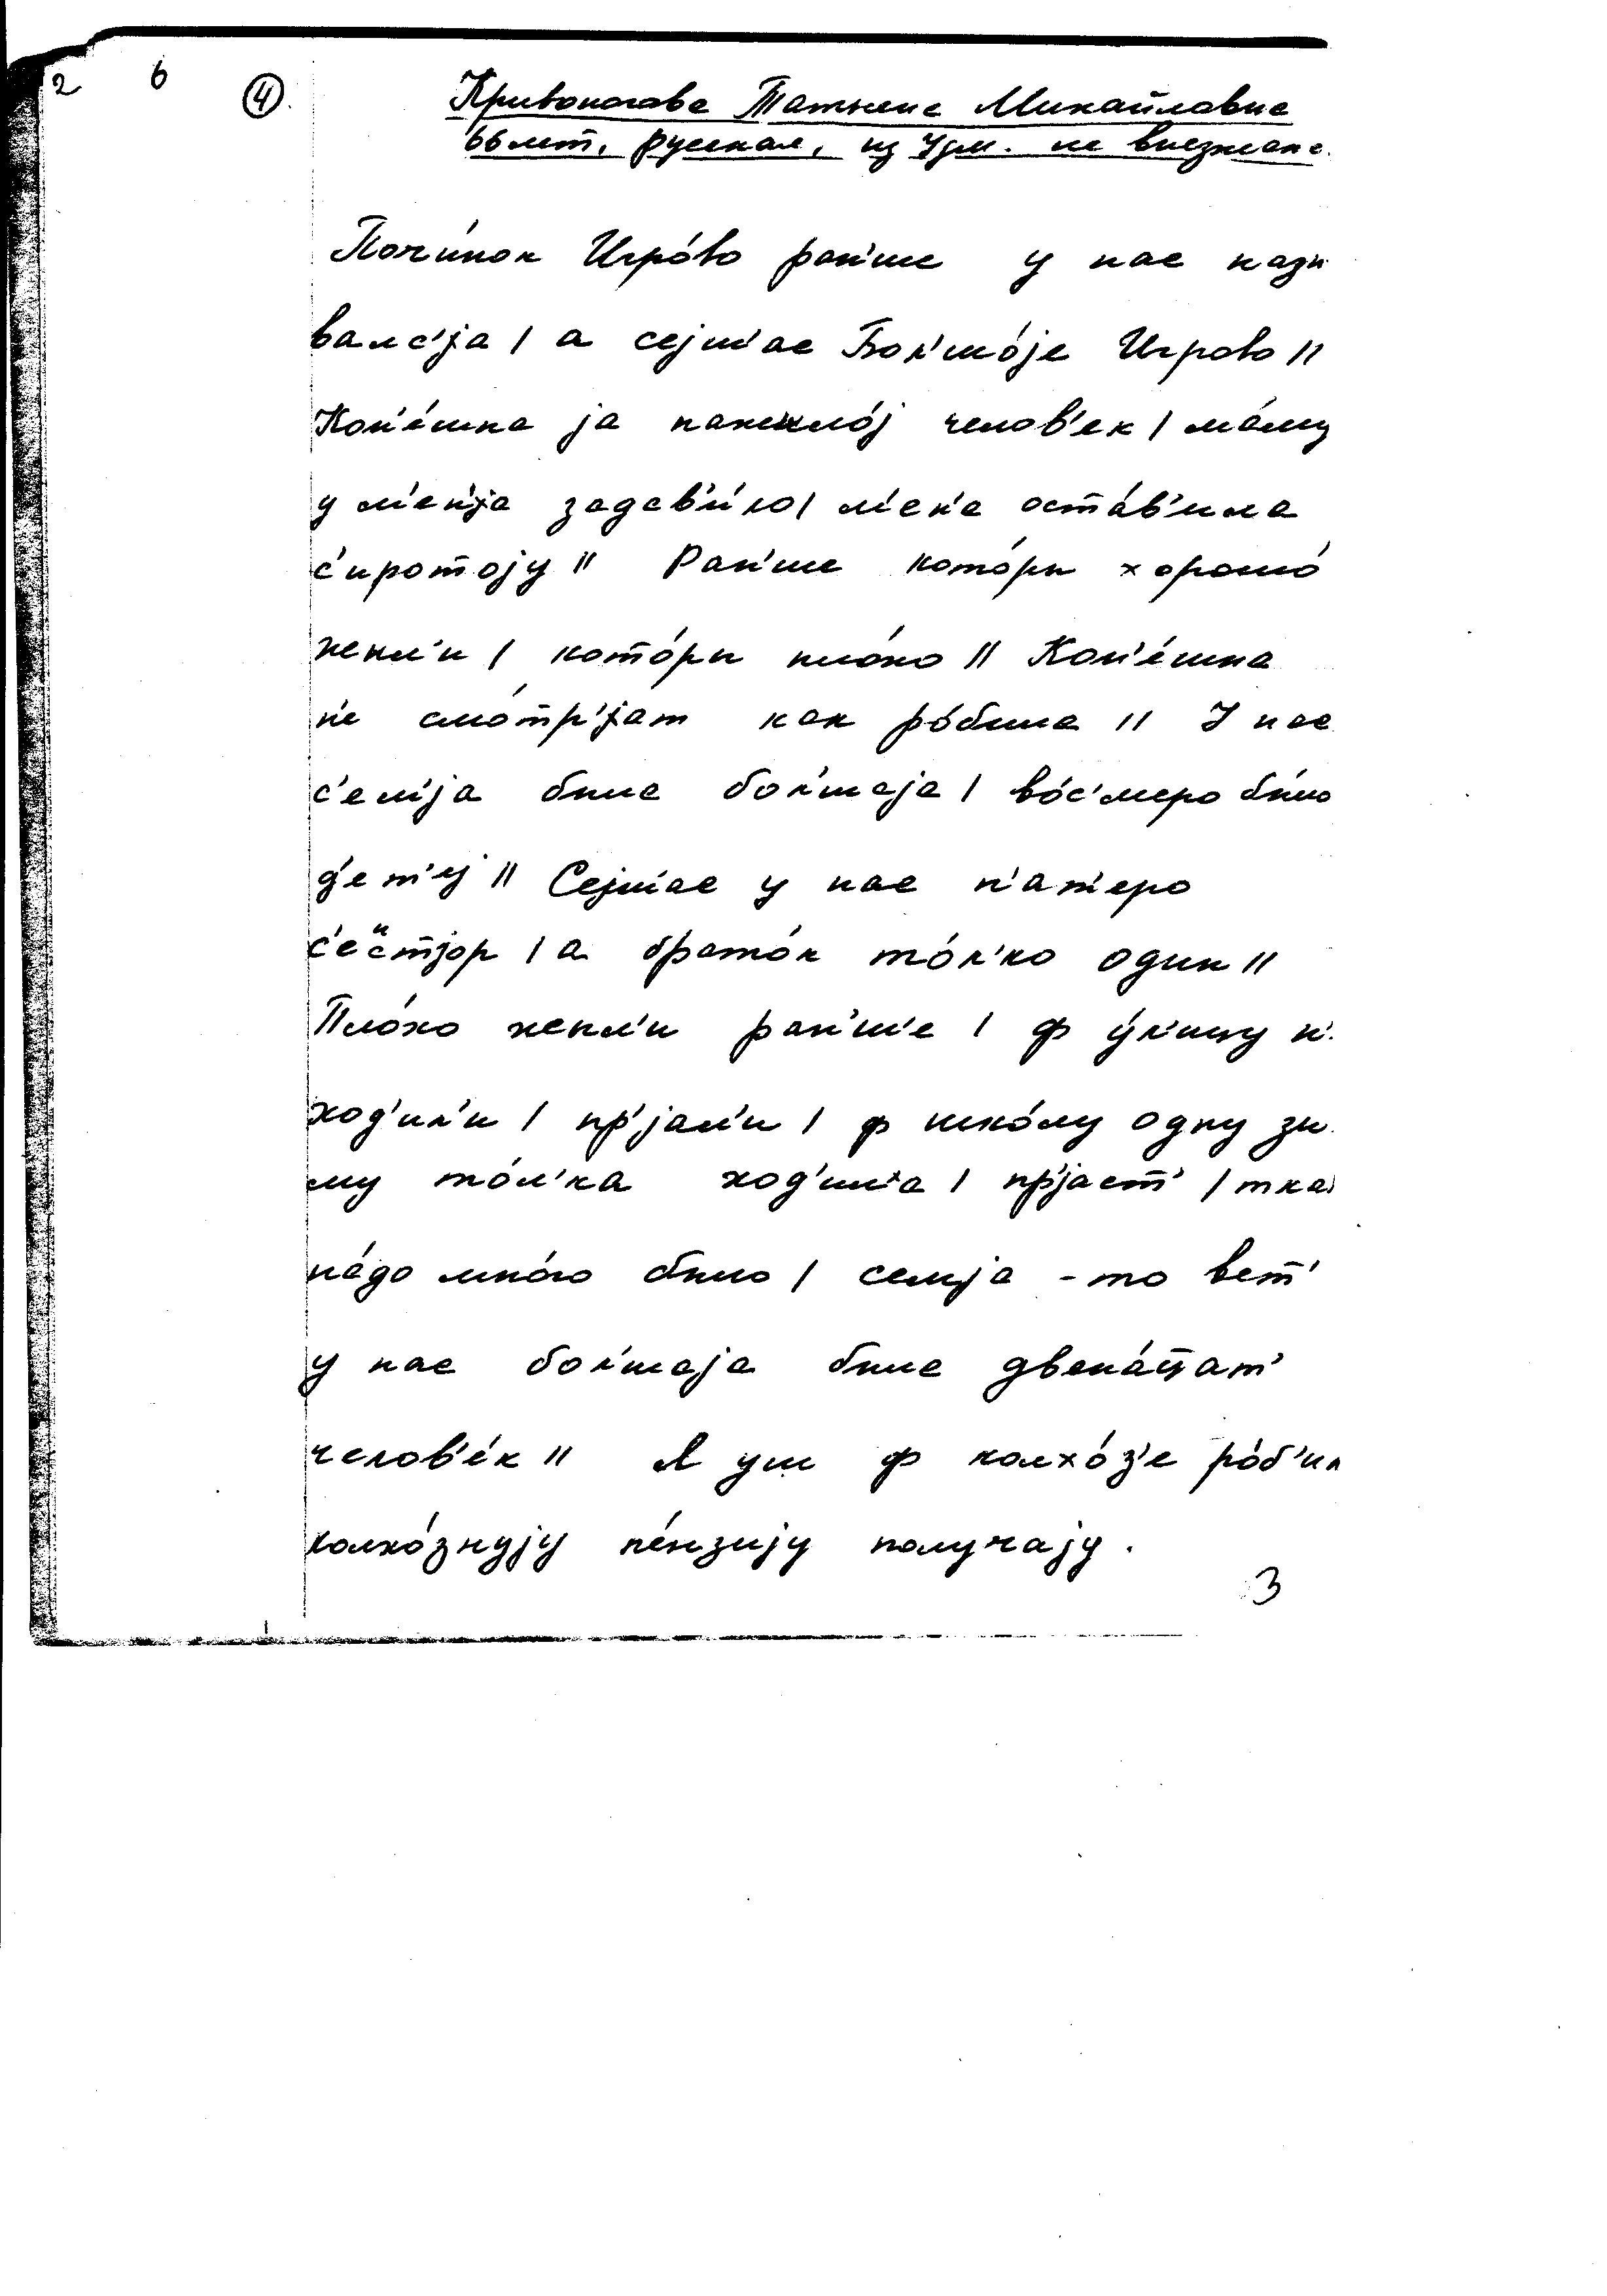 2 6 ④.
Кривоногова Татьяна Михайловна
66 лет, русская, из Удм. не выезжала.
Почи́нок Игро́во ран'ше у нас назы
валс'jа / а сejш'ас Бол'шо́je Игрово //
Кон'е́шна jа пожыло́j челов'ек / ма́му
у м'ен'jа задав'и́ло / м'ен'а оста́в'ила
с'иротоjу // Ран'ше кото́ры хорошо́
жыл'и / кото́ры пло́хо // Кон'е́шна
н'е смо́тр'jат как ро́била // У нас
с'ем'jа была бол'шаjа / во́с'меро было
д'ет'еj // Сejш'ас у нас п'ат'еро
с'ес'тjор / а брато́к то́л'ко один //
Пло́хо жыл'и ран'ш'е / ф у́л'ицу н'.
ход'ил'и / пр'jал'и / ф шко́лу одну зи
му то́л'ка ход'ила / пр'jаст' / тка
на́до мно́го было / семjа - то вет'
у нас бол'шаjа была двена́цат'
челов'е́к // А уш ф колхо́з'е ро́б'ил
колхо́знуjу пе́нзиjу получаjу.
3